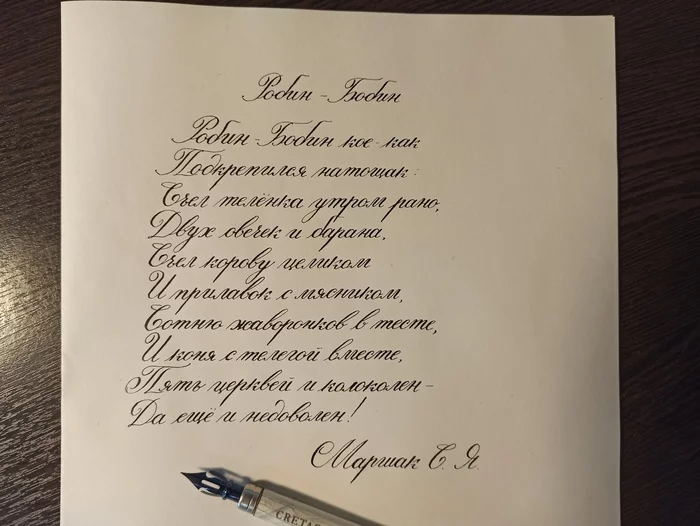 Робин-Бобин
Робин-Бобин кое-как
Подкрепился натощак:
Съел телёнка утром рано,
Двух овечек и барана,
Съел корову целиком
И прилавок с мясником,
Сотню жаворонков в тесте,
И коня с телегой вместе,
Пять церквей и колоколен –
Да ещё и недоволен!
Маршак С. Я.